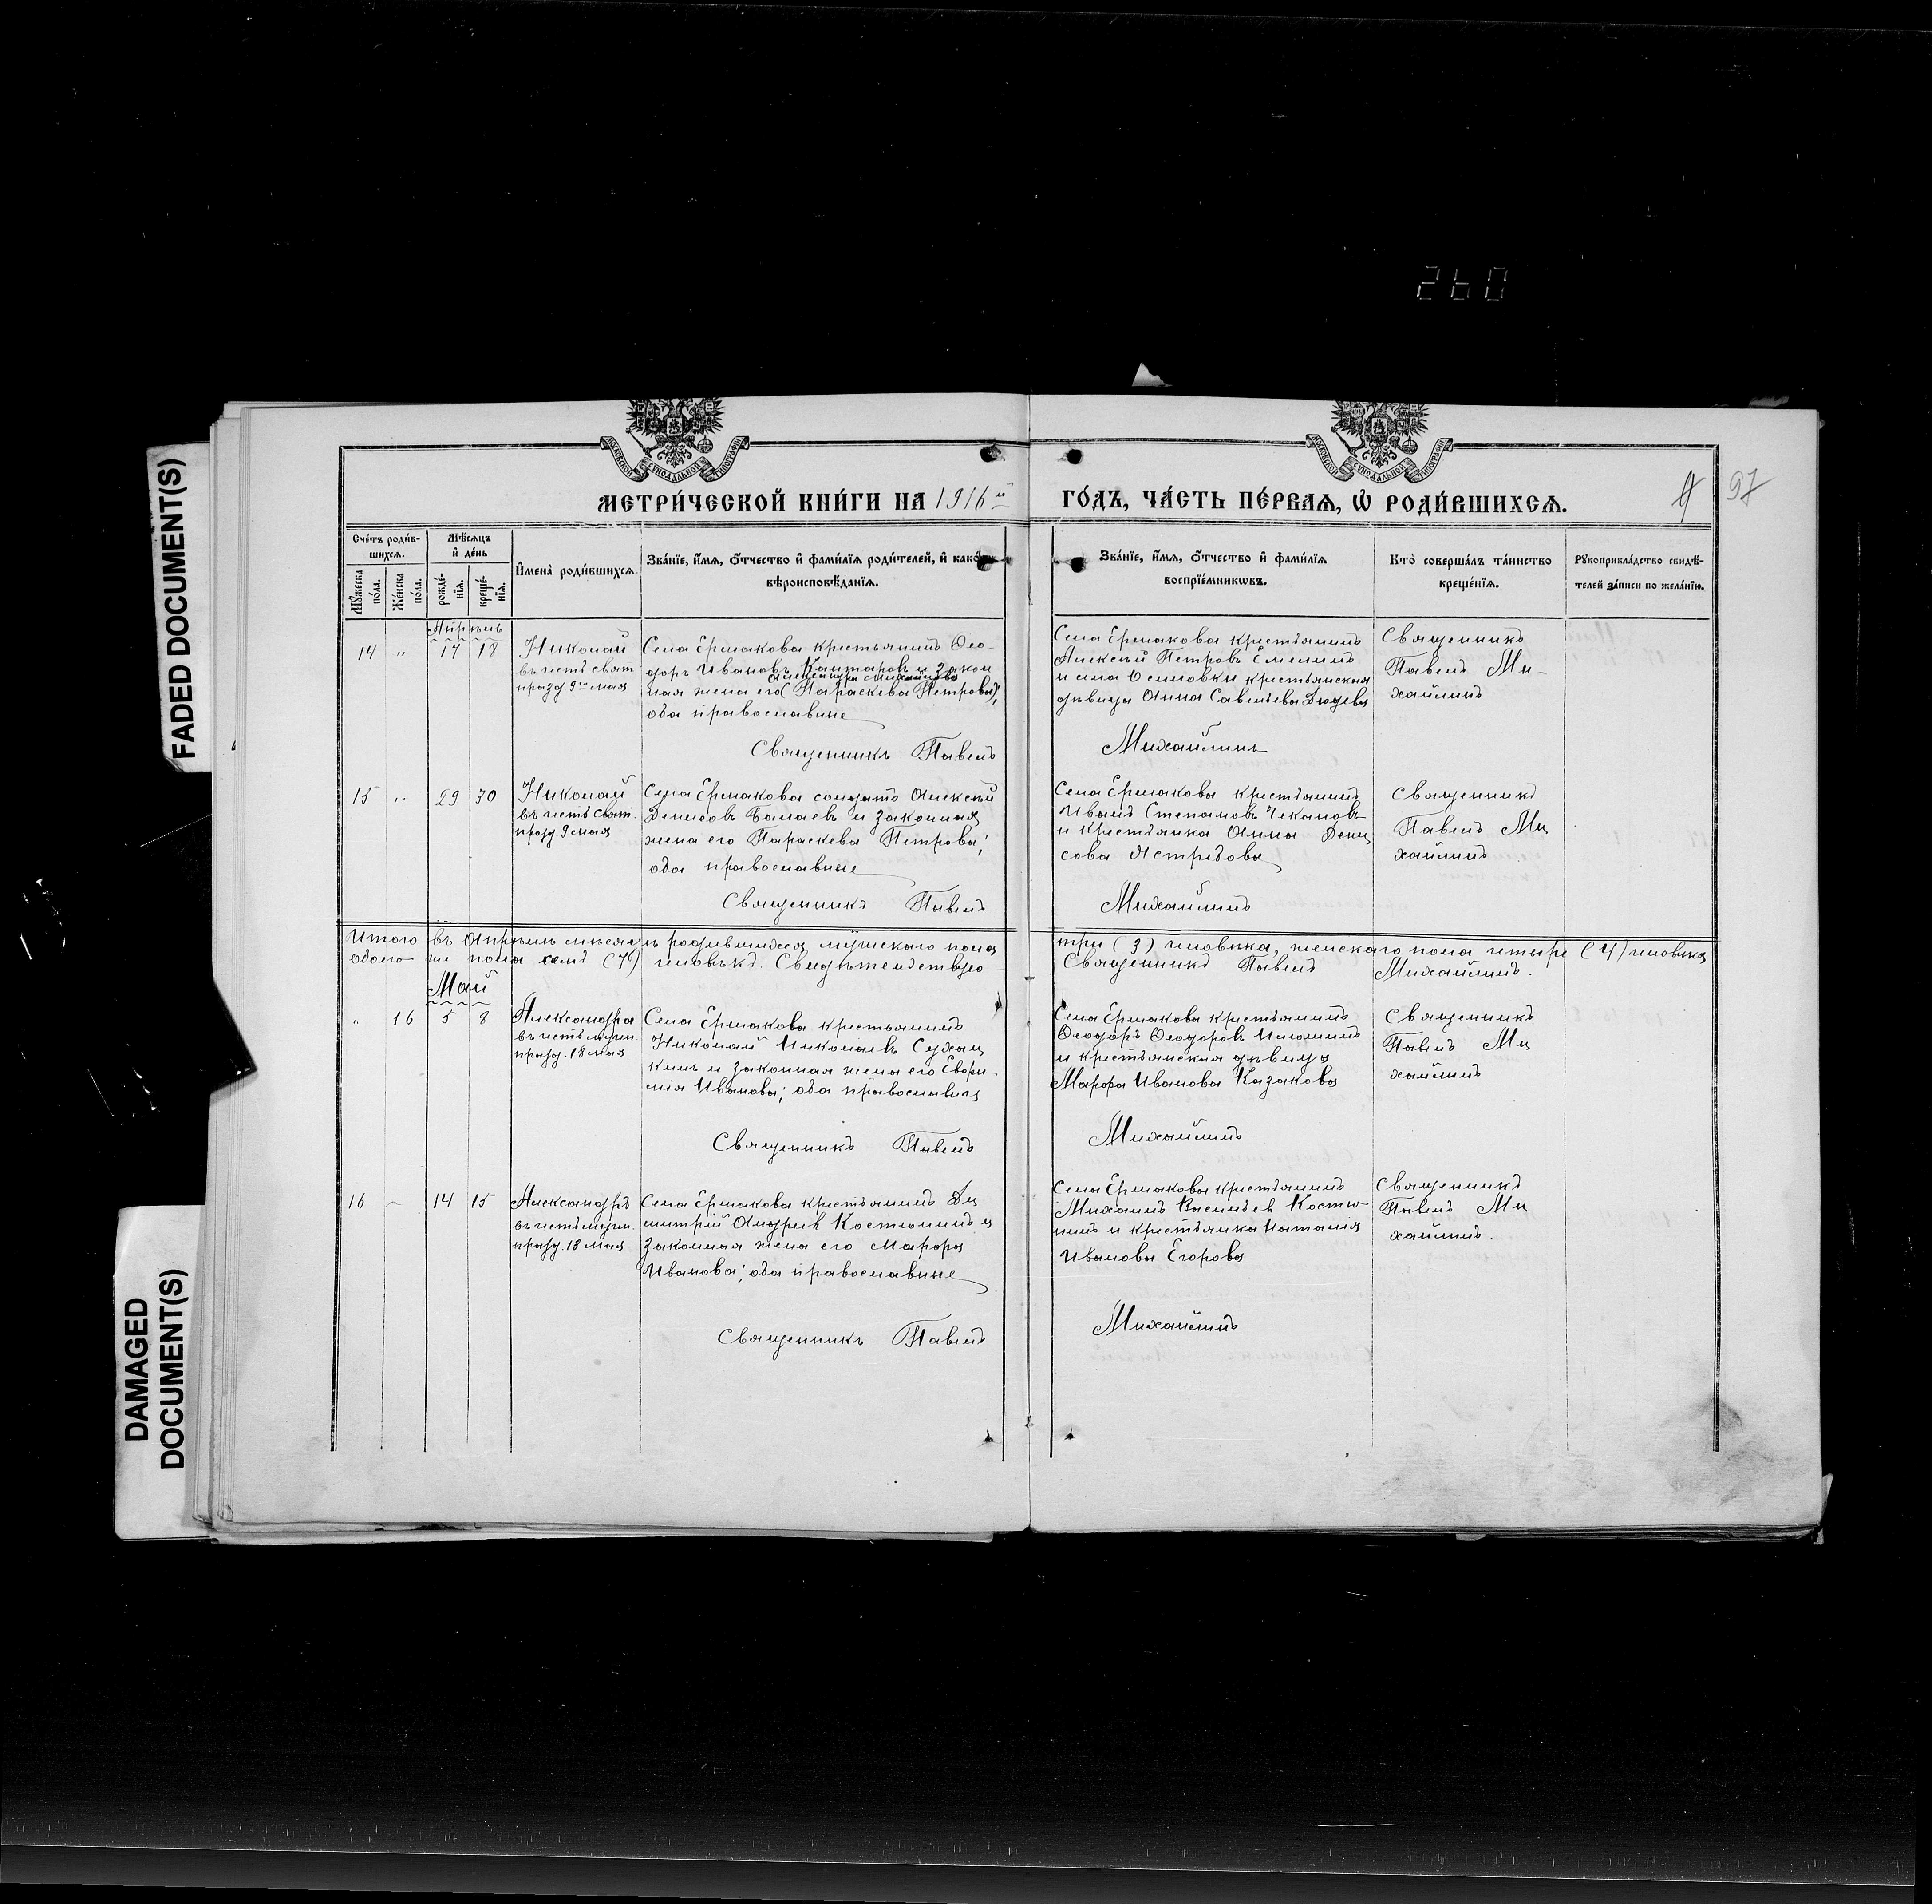 260
FADED DOCUMENT(S)
DAMAGED
DOCUMENT(S)
МЕТРИ́ЧЕСКОЙ КНИ́ГИ НА 1916й ГО́ДЪ, ЧА́СТЬ ПЕ́РВАЯ, Ѡ РОДИ́ВШИХСЯ.
97
Сче́тъ роди́в-
шихся.
Мѣ́сяцъ
и де́нь
Му́жеска
по́ла.
Же́нска
по́ла.
рожде́-
нія.
креще́-
нія.
Имена̀ роди́вшихся
Зва́нїе, и́мя, о́тчество и фами́лїя роди́телей, и како́
вѣроисповѣ́данїя.
Зва́нїе, и́мя, о́тчество и фами́лїя
воспрїе́мниковъ.
Кто̀ соверша́лъ та́инство
креще́нїя.
Рукоприкла́дство свидѣ́-
телей за́писи по жела́нїю.
Апрѣль
14 " 17 18
Николай
въ честь свят
празд 9го мая
Села Ермакова крестьянинъ Ѳео-
доръ Ивановъ Кантаровъ и закон
Александра Михайлова
ная жена его (Параскева Петрова),
оба православные
Священникъ Павелъ
Села Ермакова крестьянинъ
Алексѣй Петровъ Емелинъ
и села Осиновки крестьянская
дѣвица Анна Савельева
Михайлинъ
Священникъ
Павелъ Ми-
хайлинъ
15 " 29 30
Николай
въ честь свят.
празд. 9 мая
Села Ермакова солдатъ Алексѣй
Денисовъ Балаевъ и законная
жена его Параскева Петрова;
оба православные
Священникъ Павелъ
Села Ермакова крестьянинъ
Иванъ Степановъ Чекановъ
и крестьянка Анна Дени
сова Ястребова
Михайлинъ
Священникъ
Павелъ Ми
хайлинъ
Итого въ Апрѣлѣ мѣсяцѣ родившихся мужскаго пола три (3) человѣка, женскаго пола четыре (4) человѣка
обоего же пола семь (7) человѣкъ. Свидѣтельствую Священникъ Павелъ Михайлинъ.
Май
" 16 5 8
Александра
въ честь мучен
празд. 18 мая
Села Ермакова крестьянинъ
Николай Николаевъ Сухан
кинъ и законная жена его Евфи-
мія Иванова; оба православныя
Священникъ Павелъ
Села Ермакова крестьянинъ
Ѳеодоръ Ѳеодоровъ
и крестьянская дѣвица
Марфа Иванова Казакова
Михайлинъ
Священникъ
Павелъ Ми
хайлинъ
16 14 15
Александръ
въ честь мучен.
празд. 13 мая
Села Ермакова крестьянинъ Ди
митрій Андреевъ Костюнинъ и
законная жена его Марфа
Иванова; оба православные
Священникъ Павелъ
Села Ермакова крестьянинъ
Михаилъ Васильевъ Костю
нинъ и крестьянка Наталія
Иванова Егорова
Михайлинъ
Священникъ
Павелъ Ми
хайлинъ.